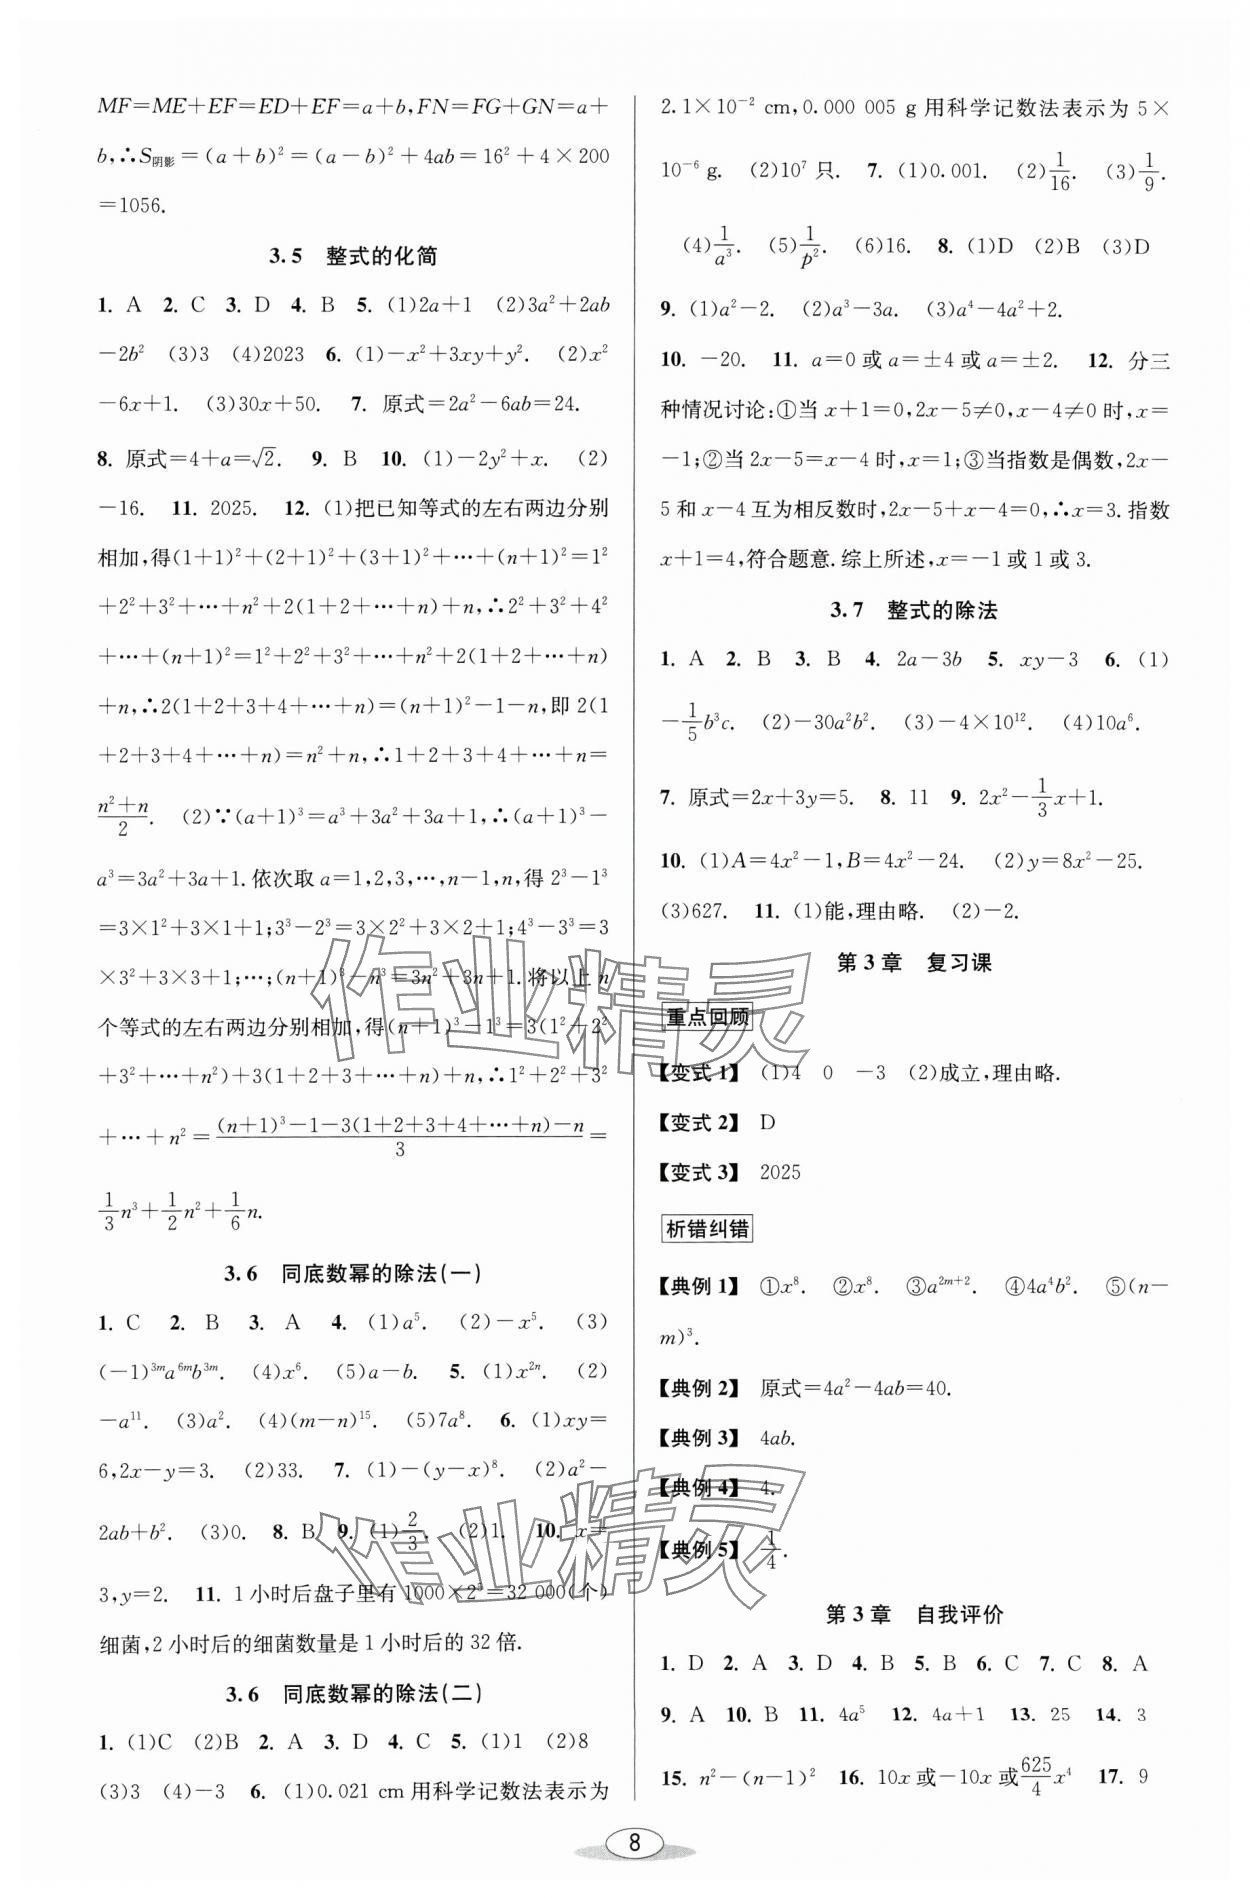 MF=ME+EF=ED+EF=a+b,FN=FG+GN=a+
b,∴S阴影=(a+b)²=(a-b)²+4ab=16²+4×200
=1056.
3.5 整式的化简
1. A 2. C 3. D 4. B 5. (1)2a+1 (2)3a²+2ab
-2b² (3)3 (4)2023 6. (1)-x²+3xy+y². (2)x²
-6x+1. (3)30x+50. 7. 原式=2a²-6ab=24.
8. 原式=4+a=√2. 9. B 10. (1)-2y²+x. (2)
-16. 11. 2025. 12. (1)把已知等式的左右两边分别
相加,得(1+1)²+(2+1)²+(3+1)²+…+(n+1)²=1²
+2²+3²+…+n²+2(1+2+…+n)+n,∴2²+3²+4²
+…+(n+1)²=1²+2²+3²+…+n²+2(1+2+…+n)
+n,∴2(1+2+3+4+…+n)=(n+1)²-1-n,即 2(1
+2+3+4+…+n)=n²+n,∴1+2+3+4+…+n=
(n²+n)/2. (2)∵(a+1)³=a³+3a²+3a+1,∴(a+1)³-
a³=3a²+3a+1.依次取 a=1,2,3,…,n-1,n,得 2³-1³
=3×1²+3×1+1;3³-2³=3×2²+3×2+1;4³-3³=3
×3²+3×3+1;…;(n+1)³-n³=3n²+3n+1.将以上 n
个等式的左右两边分别相加,得(n+1)³-1³=3(1²+2²
+3²+…+n²)+3(1+2+3+…+n)+n,∴1²+2²+3²
+…+n²=((n+1)³-1-3(1+2+3+4+…+n)-n)/3=
1/3n³+1/2n²+1/6n.
3.6 同底数幂的除法(一)
1. C 2. B 3. A 4. (1)a⁵. (2)-x⁵. (3)
(-1)³ᵐa⁶ᵐb³ᵐ. (4)x⁶. (5)a-b. 5. (1)x²ⁿ. (2)
-a¹¹. (3)a². (4)(m-n)¹⁵. (5)7a⁸. 6. (1)xy=
6,2x-y=3. (2)33. 7. (1)-(y-x)⁸. (2)a²-
2ab+b². (3)0. 8. B 9. (1)2/3. (2)1. 10. x=
3,y=2. 11. 1 小时后盘子里有 1000×2⁵=32 000(个)
细菌,2 小时后的细菌数量是 1 小时后的 32 倍.
3.6 同底数幂的除法(二)
1. (1)C (2)B 2. A 3. D 4. C 5. (1)1 (2)8
(3)3 (4)-3 6. (1)0.021 cm 用科学记数法表示为
2.1×10⁻² cm,0.000 005 g 用科学记数法表示为 5×
10⁻⁶ g. (2)10⁷ 只. 7. (1)0.001. (2)1/16. (3)1/9.
(4)1/a³. (5)1/p². (6)16. 8. (1)D (2)B (3)D
9. (1)a²-2. (2)a³-3a. (3)a⁴-4a²+2.
10. -20. 11. a=0 或 a=±4 或 a=±2. 12. 分三
种情况讨论:①当 x+1=0,2x-5≠0,x-4≠0 时,x=
-1;②当 2x-5=x-4 时,x=1;③当指数是偶数,2x-
5 和 x-4 互为相反数时,2x-5+x-4=0,∴x=3.指数
x+1=4,符合题意.综上所述,x=-1 或 1 或 3.
3.7 整式的除法
1. A 2. B 3. B 4. 2a-3b 5. xy-3 6. (1)
-1/5b³c. (2)-30a²b². (3)-4×10¹². (4)10a⁶.
7. 原式=2x+3y=5. 8. 11 9. 2x²-1/3x+1.
10. (1)A=4x²-1,B=4x²-24. (2)y=8x²-25.
(3)627. 11. (1)能,理由略. (2)-2.
第 3 章 复习课
重点回顾
【变式 1】 (1)4 0 -3 (2)成立,理由略.
【变式 2】 D
【变式 3】 2025
析错纠错
【典例 1】 ①x⁸. ②x⁸. ③a²ᵐ⁺². ④4a⁴b². ⑤(n-
m)³.
【典例 2】 原式=4a²-4ab=40.
【典例 3】 4ab.
【典例 4】 4.
【典例 5】 1/4.
第 3 章 自我评价
1. D 2. A 3. D 4. B 5. B 6. C 7. C 8. A
9. A 10. B 11. 4a⁵ 12. 4a+1 13. 25 14. 3
15. n²-(n-1)² 16. 10x 或-10x 或625/4x⁴ 17. 9
8
作业精灵
作业精灵